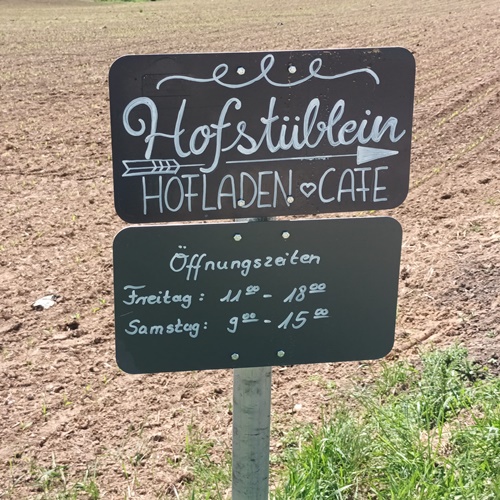 Hofstüblein
HOFLADEN ♡ CAFE
Öffnungszeiten
Freitag: 11⁰⁰ - 18⁰⁰
Samstag: 9⁰⁰ - 15⁰⁰